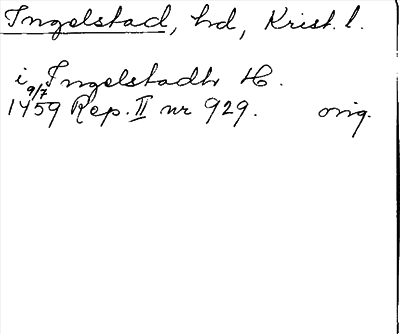 Ingelstad, hd, Krist. l.
i Ingelstadh H.
9/7
1459 Rep. II nr 929. orig.